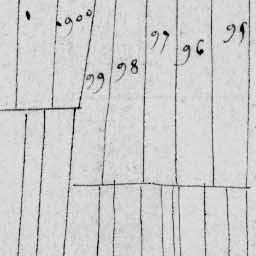 900
99
98
97
96
95